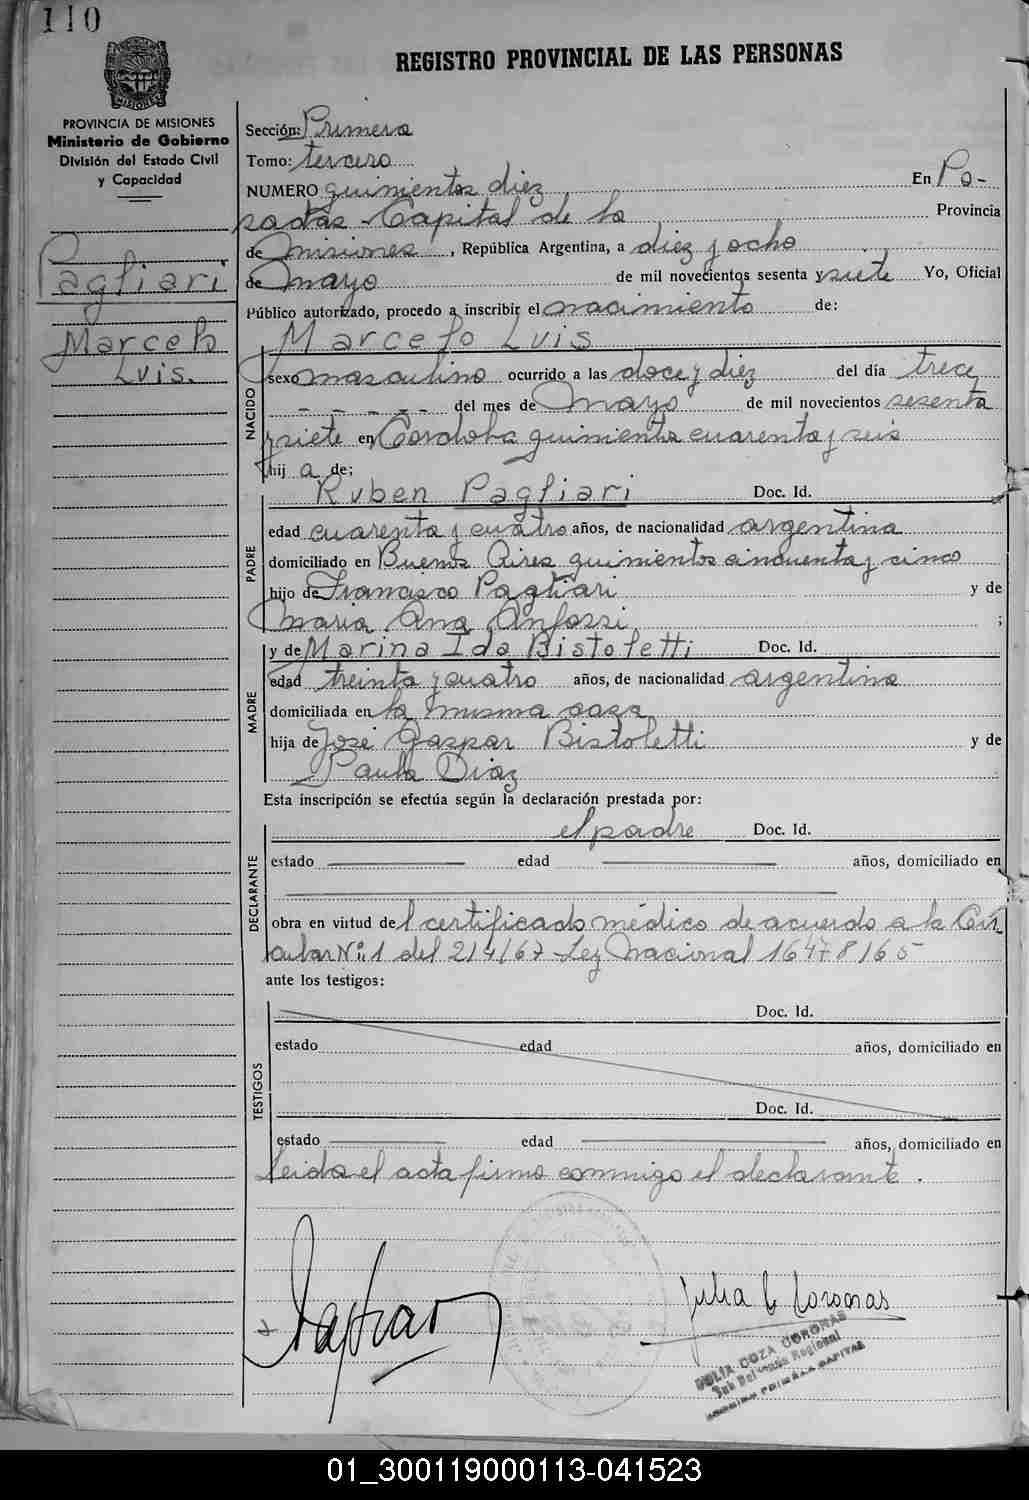 110
REGISTRO PROVINCIAL DE LAS PERSONAS
PROVINCIA DE MISIONES
Ministerio de Gobierno
División del Estado Civil
y Capacidad
Pagliari
Marcelo
Luis.
Sección: Primera
Tomo: tercero
NUMERO quinientos diez En Po-
sadas - Capital de la Provincia
de Misiones, República Argentina, a diez y ocho
de mayo de mil novecientos sesenta y siete Yo, Oficial
Público autorizado, procedo a inscribir el nacimiento de:
Marcelo Luis
NACIDO
sexo masculino ocurrido a las doce y diez del día trece
- - - - - del mes de Mayo de mil novecientos sesenta
y siete en Cordoba quinientos cuarenta y seis
hij a de;
Ruben Pagliari Doc. Id.
PADRE
edad cuarenta y cuatro años, de nacionalidad argentina
domiciliado en Buenos Aires quinientos cincuenta y cinco
hijo de Francisco Pagliari y de
Maria Ana Anfossi ;
y de Marina Ida Bistoletti Doc. Id.
MADRE
edad treinta y cuatro años, de nacionalidad argentina
domiciliada en la misma casa
hija de José Gaspar Bistoletti y de
Paula Diaz
Esta inscripción se efectúa según la declaración prestada por:
el padre Doc. Id.
DECLARANTE
estado edad años, domiciliado en
obra en virtud del certificado médico de acuerdo a la Cir
cular Nº 1 del 21/4/67 Ley Nacional 16478/65
ante los testigos:
Doc. Id.
TESTIGOS
estado edad años, domiciliado en
Doc. Id.
estado edad años, domiciliado en
Leida el acta firma conmigo el declarante.
Pagliari
Julia C Coronas
JULIA COZA CORONAS
Sub Regional
CAPITAL
01_300119000113-041523